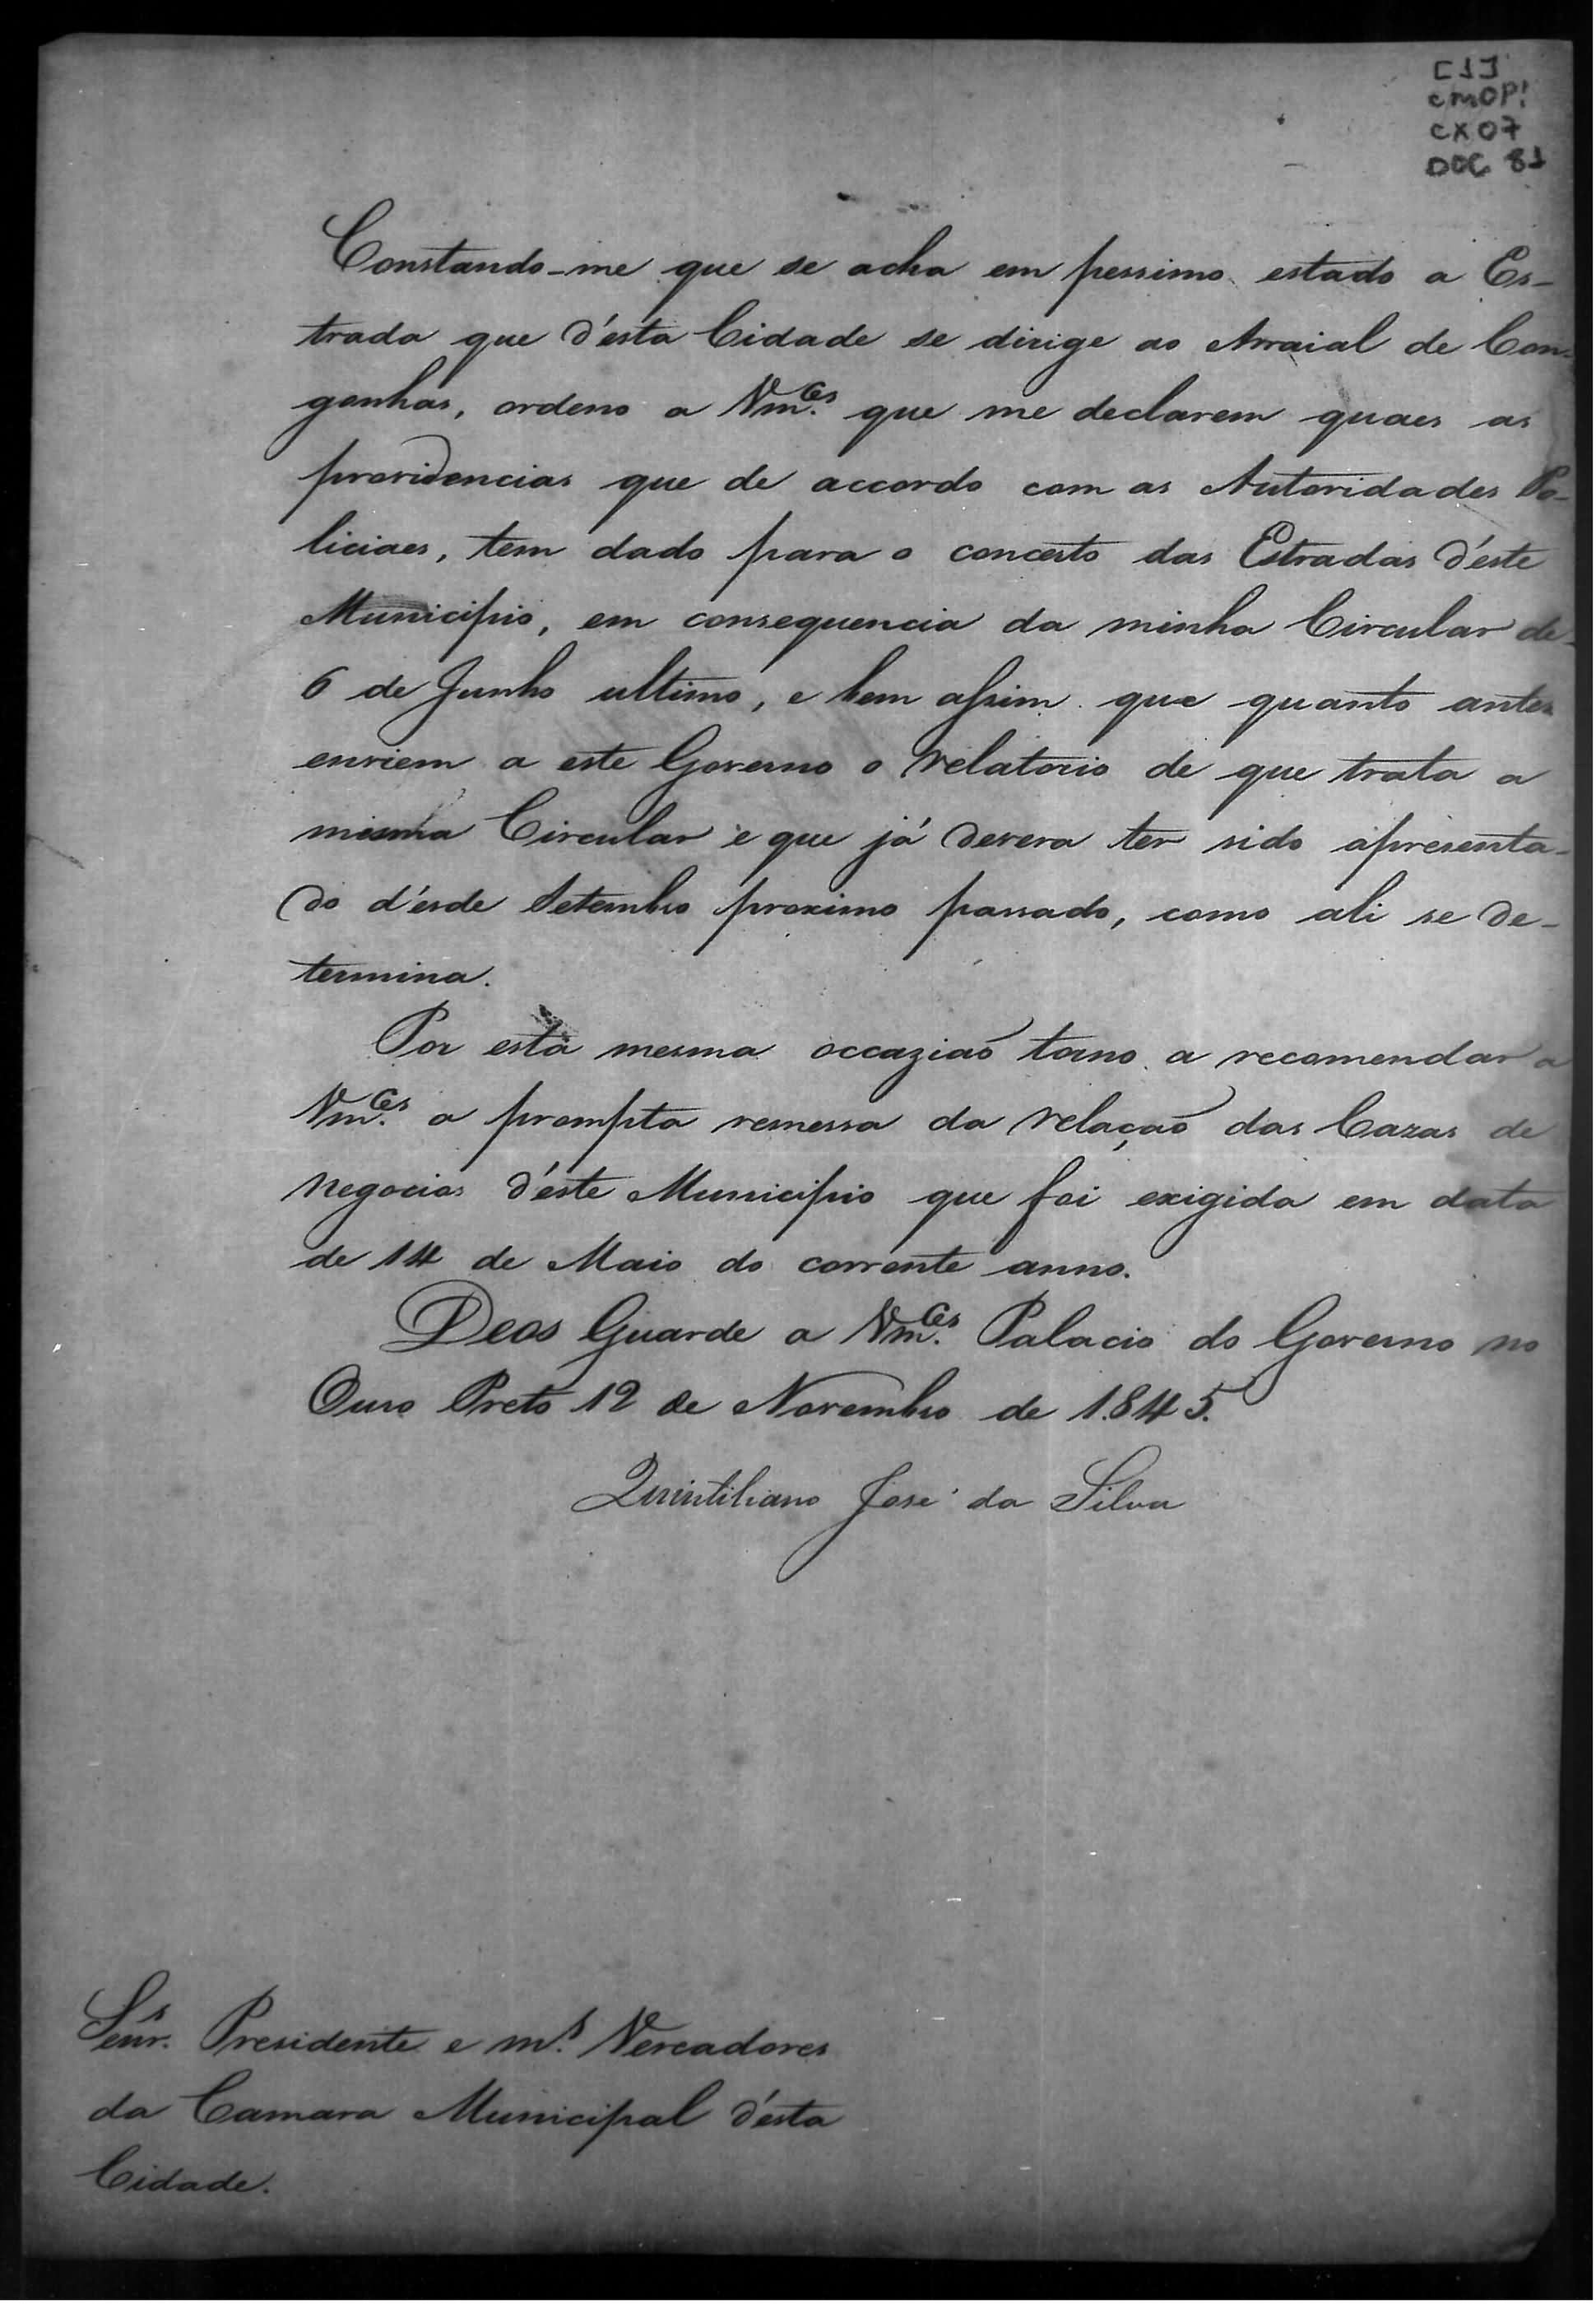 [1]
CMOP!
CX 07
DOC 81
Constando-me que se acha em pessimo estado a Es-
trada que d'ésta Cidade se dirige ao Arraial de Con-
gonhas, ordeno a Vm.ces que me declarem quaes as
providencias que de accordo com as Autoridades Po-
liciaes, tem dado para o concerto das Estradas d'éste
Municipio, em consequencia da minha Circular de
6 de Junho ultimo, e bem assim que quanto antes
enviem a este Governo o relatorio de que trata a
mesma Circular e que já devera ter sido apresenta-
do d'ésde Setembro proximo passado, como ali se de-
termina.
Por esta mesma occazião torno a recomendar a
Vm.ces a prompta remessa da relação das Cazas de
negocios d'éste Municipio que foi exigida em data
de 14 de Maio do corrente anno.
Deos Guarde a Vm.ces Palacio do Governo no
Ouro Preto 12 de Novembro de 1.845.
Quintiliano José da Silva
Senr.s Presidente e m.s Vereadores
da Camara Municipal d'ésta
Cidade.